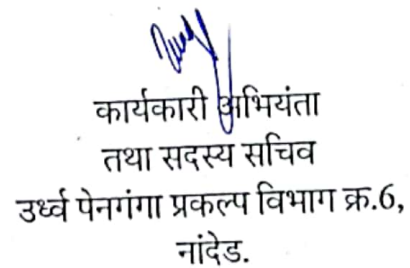 कार्यकारी अभियंता
तथा सदस्य सचिव
उर्ध्व पेनगंगा प्रकल्प विभाग क्र.6,
नांदेड.